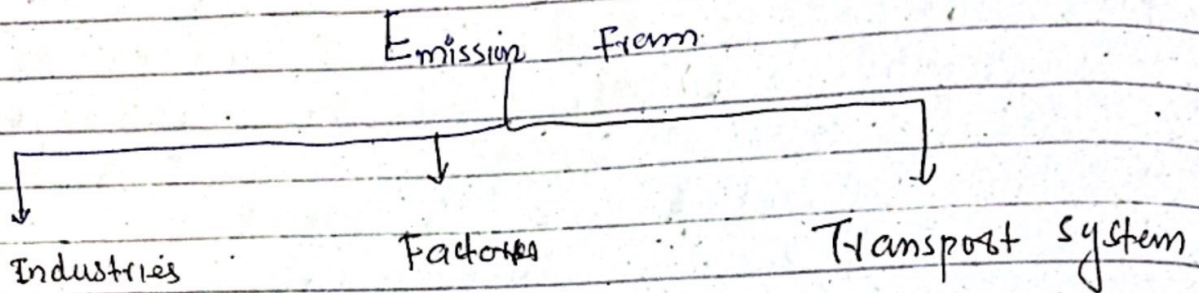 Emission From
Industries Factories Transport system